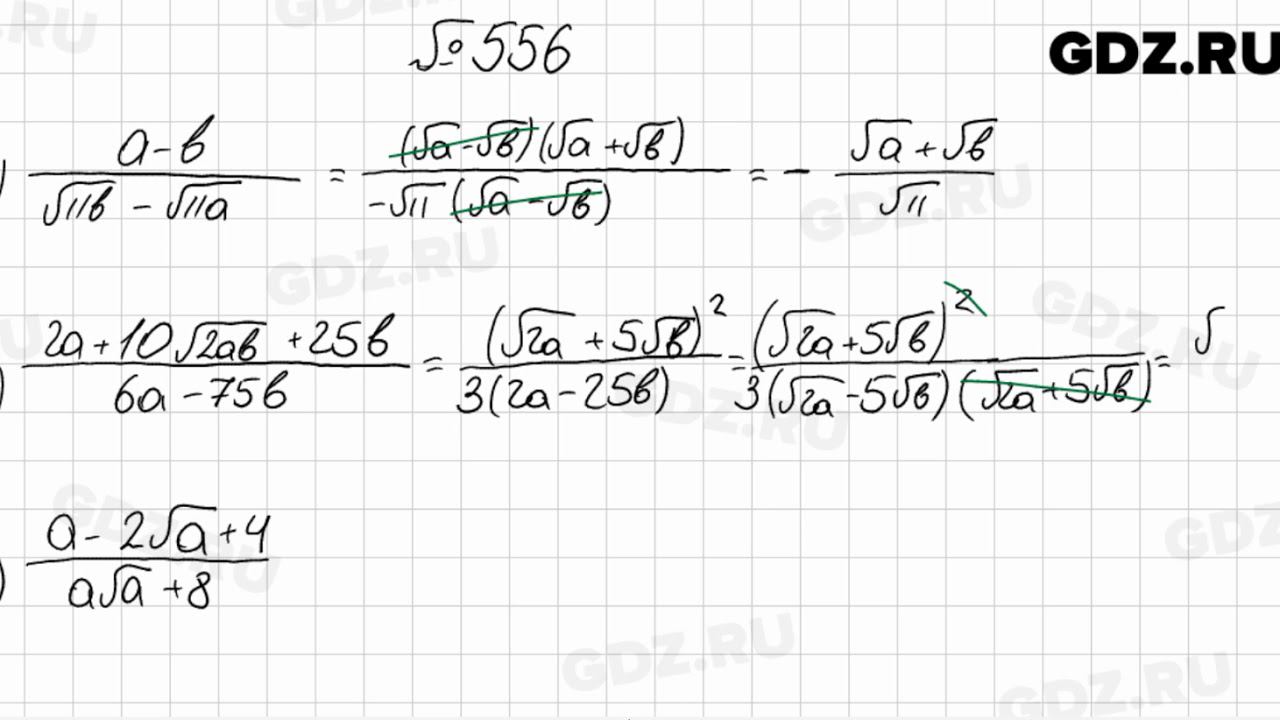 № 556
GDZ.RU
) (a-в)/(√11в - √11a) = ((√a-√в)(√a+√в))/(-√11(√a-√в)) = - (√a+√в)/√11
) (2a+10√2aв+25в)/(6a-75в) = (√2a+5√в)²/(3(2a-25в)) = (√2a+5√в)²/(3(√2a-5√в)(√2a+5√в)) = √
) (a-2√a+4)/(a√a+8)